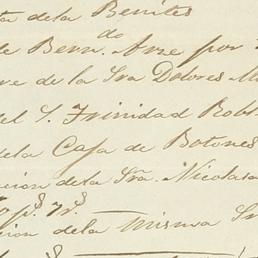 ta dela Benites
de Berna.do Arze por
re de la Sra Dolores M
del S. Trinidad Robl
dela Casa de Botones
cion dela Sra. Nicolasa
o ps. 7 rs.
cion dela misma Sr